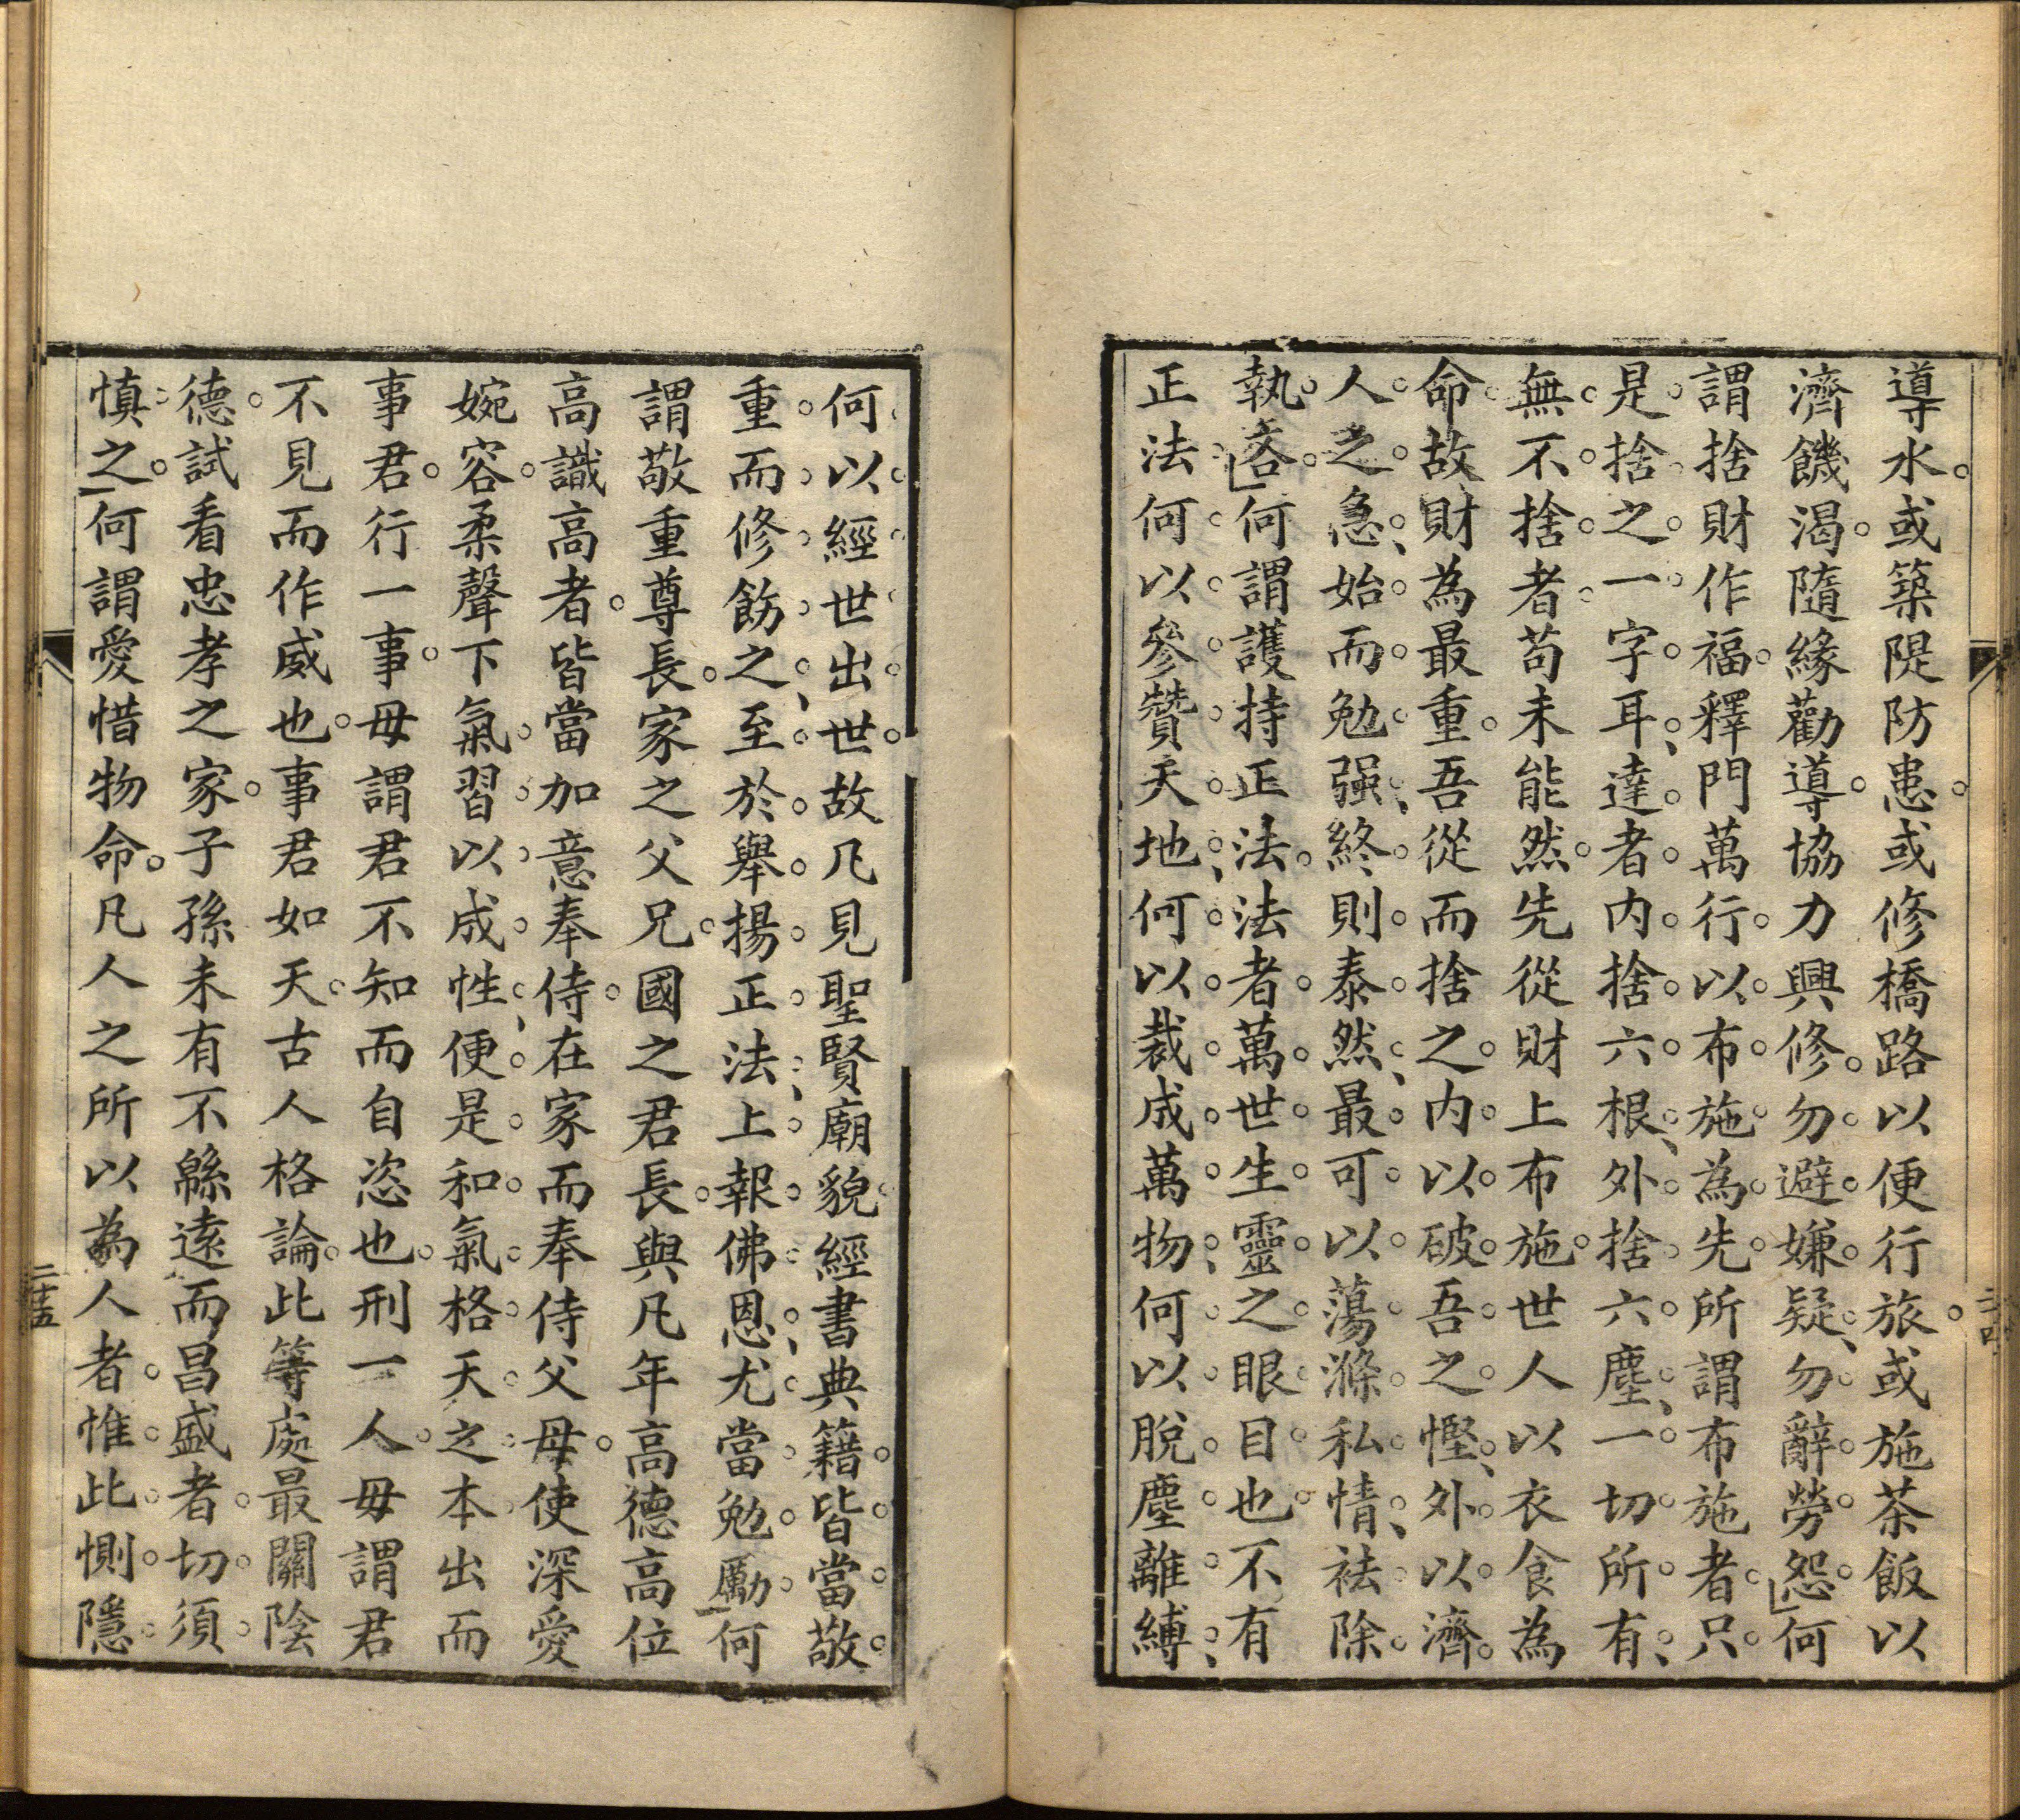 導水或築隄防患或修橋路以便行旅或施茶飯以
濟饑渴隨緣勸導協力興修勿避嫌疑勿辭勞怨何
謂捨財作福釋門萬行以布施為先所謂布施者只
是捨之一字耳達者內捨六根外捨六塵一切所有
無不捨者苟未能然先從財上布施世人以衣食為
命故財為最重吾從而捨之內以破吾之慳外以濟
人之急始而勉强終則泰然最可以蕩滌私情祛除
執吝何謂護持正法法者萬世生靈之眼目也不有
正法何以參贊天地何以裁成萬物何以脫塵離縛
二十四
何以經世出世故凡見聖賢廟貌經書典籍皆當敬
重而修飭之至於舉揚正法上報佛恩尤當勉勵何
謂敬重尊長家之父兄國之君長與凡年高德高位
高識高者皆當加意奉侍在家而奉侍父母使深愛
婉容柔聲下氣習以成性便是和氣格天之本出而
事君行一事毋謂君不知而自恣也刑一人毋謂君
不見而作威也事君如天古人格論此等處最關陰
德試看忠孝之家子孫未有不緜遠而昌盛者切須
慎之何謂愛惜物命凡人之所以為人者惟此惻隱
二十五